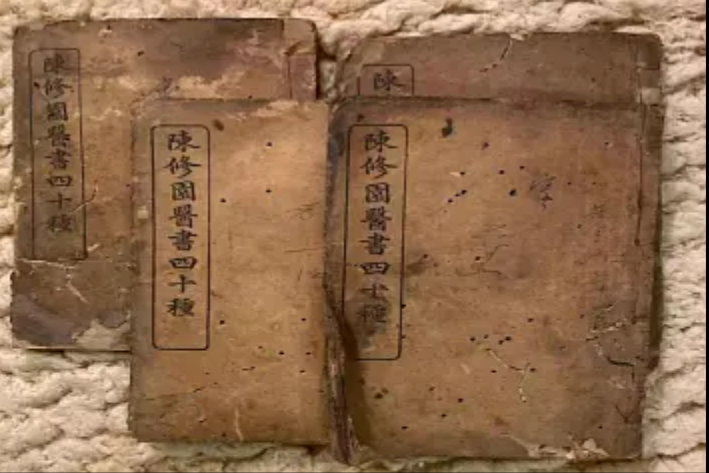 陳修園醫書四十種
陳
陳修園醫書四十種
陳修園醫書四十種